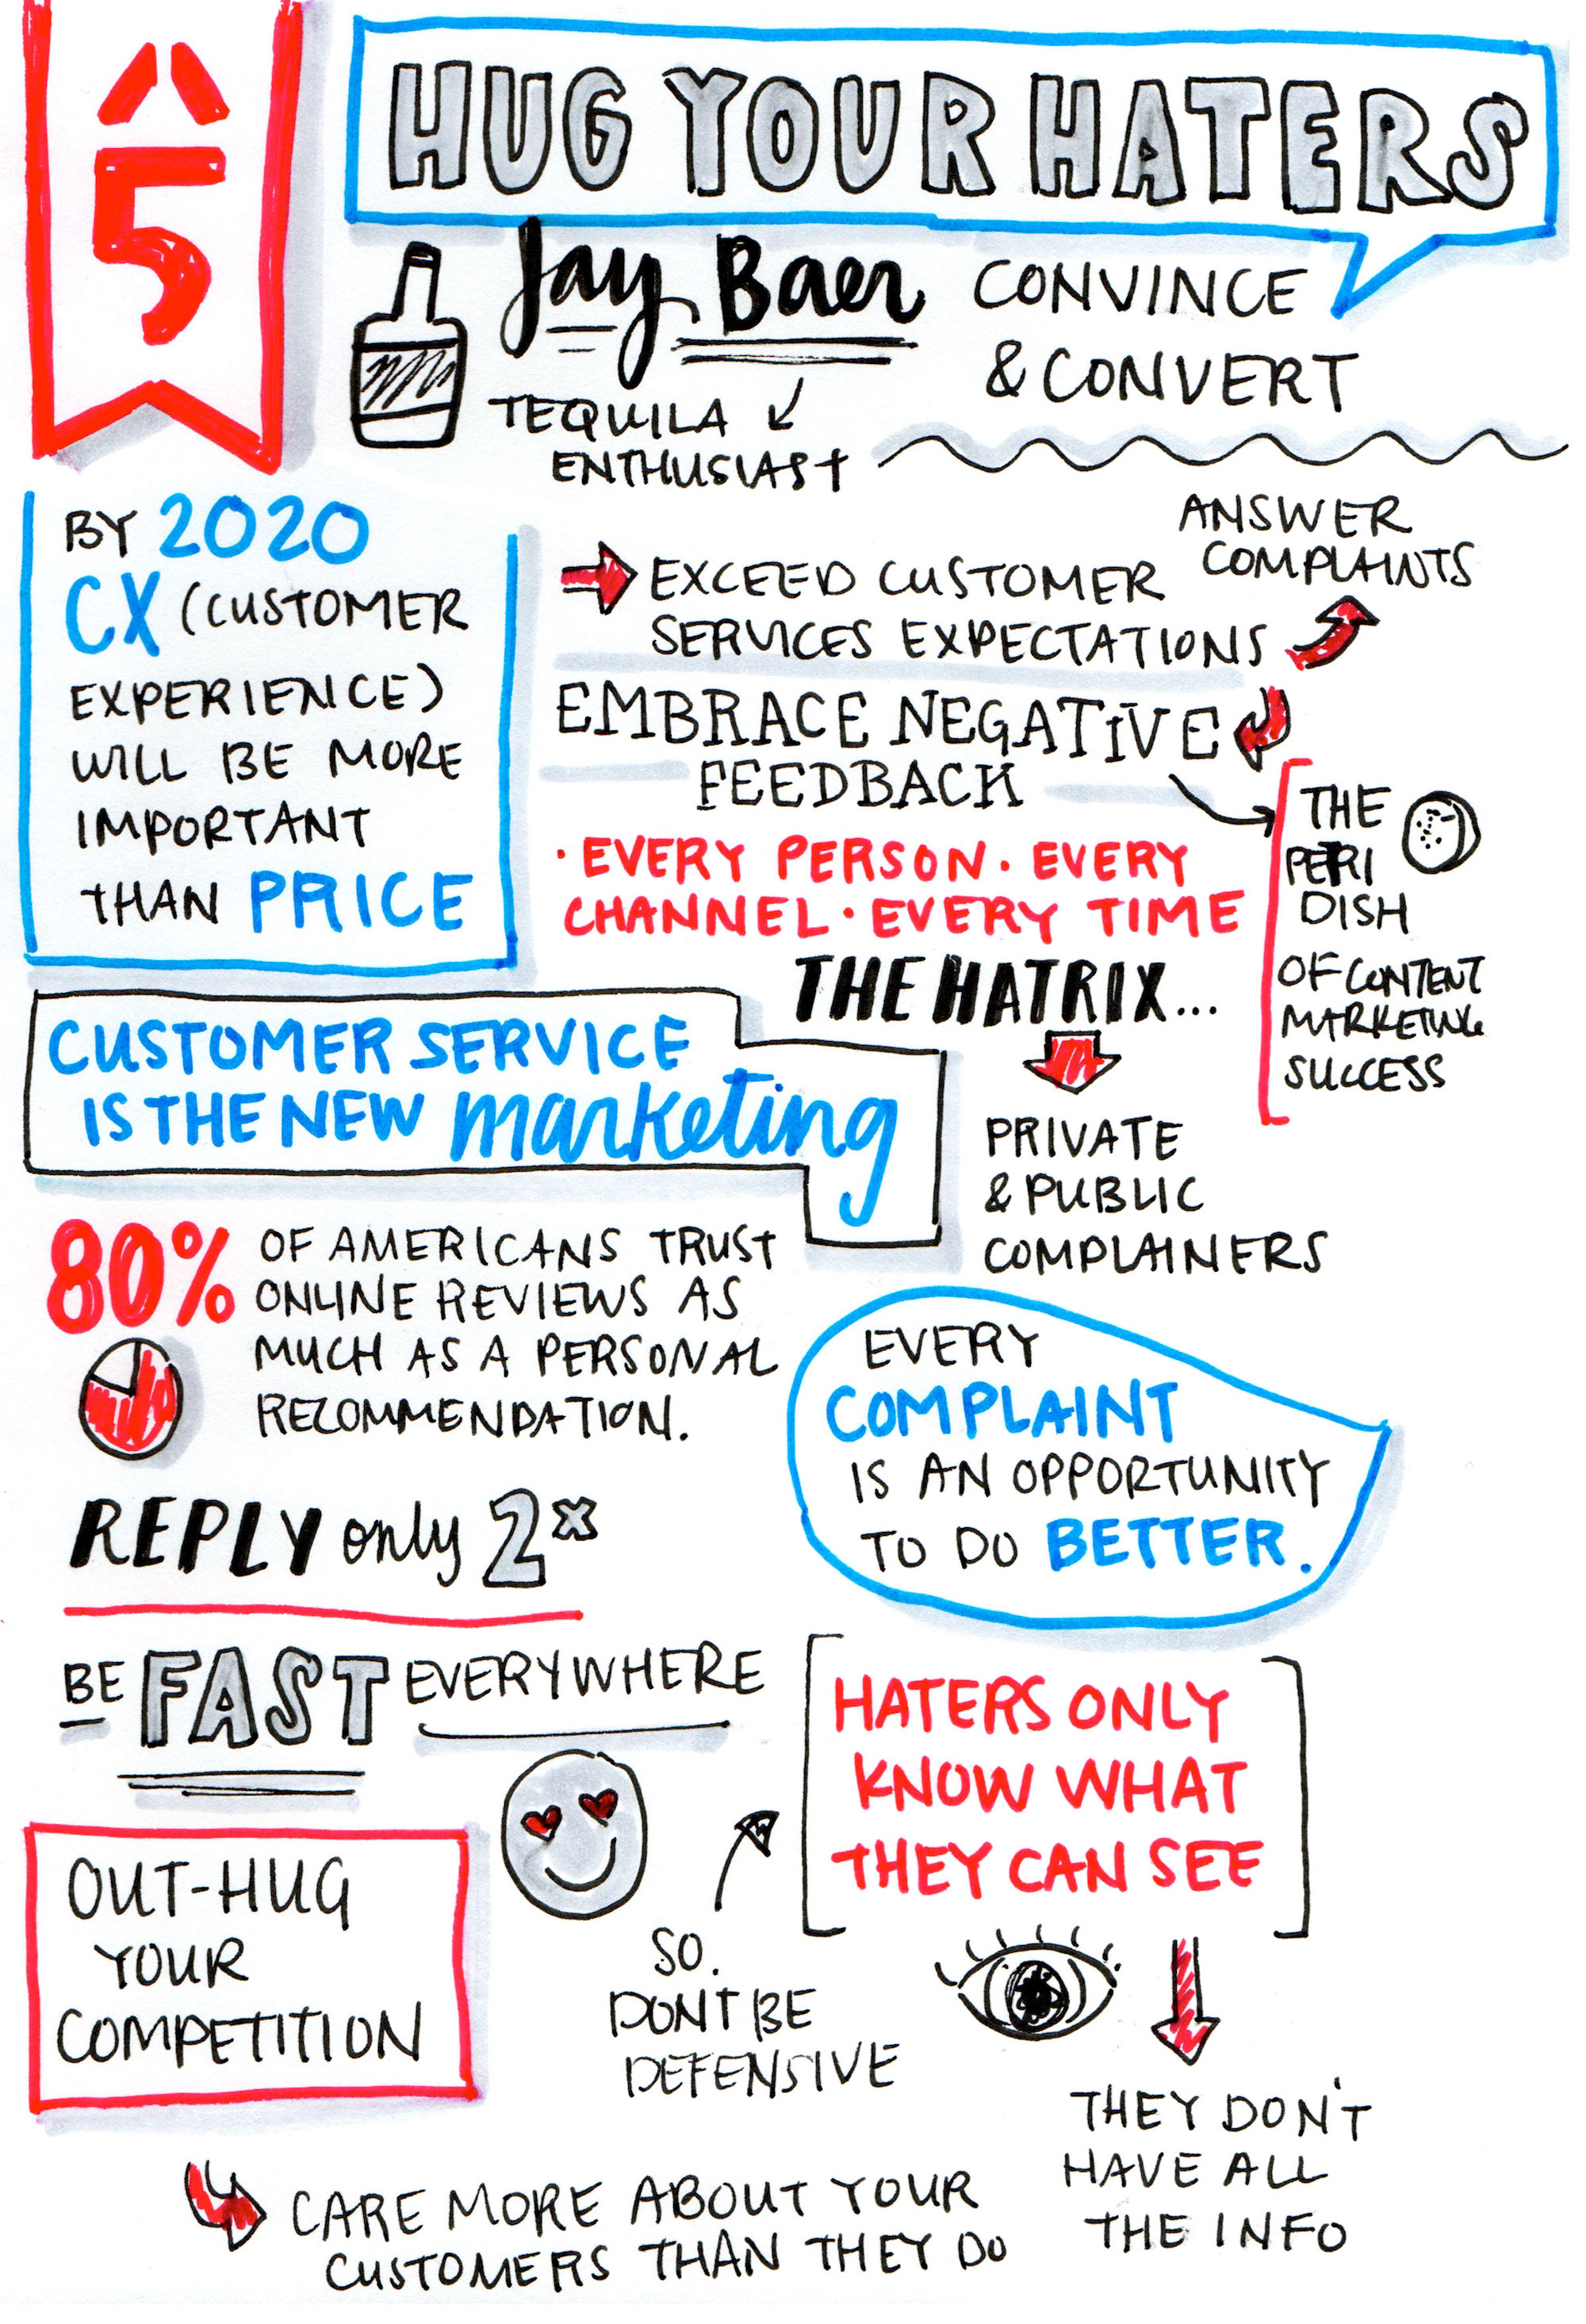 5
HUG YOUR HATERS
Jay Baer
CONVINCE
& CONVERT
TEQUILA
ENTHUSIAST
BY 2020
CX (CUSTOMER
EXPERIENCE)
WILL BE MORE
IMPORTANT
THAN PRICE
ANSWER
COMPLAINTS
EXCEED CUSTOMER
SERVICES EXPECTATIONS
EMBRACE NEGATIVE
FEEDBACK
· EVERY PERSON · EVERY
CHANNEL · EVERY TIME
THE
PETRI
DISH
OF CONTENT
MARKETING
SUCCESS
THE HATRIX...
PRIVATE
& PUBLIC
COMPLAINERS
CUSTOMER SERVICE
IS THE NEW marketing
80% OF AMERICANS TRUST
ONLINE REVIEWS AS
MUCH AS A PERSONAL
RECOMMENDATION.
EVERY
COMPLAINT
IS AN OPPORTUNITY
TO DO BETTER.
REPLY only 2x
BE FAST EVERYWHERE
HATERS ONLY
KNOW WHAT
THEY CAN SEE
OUT-HUG
YOUR
COMPETITION
SO.
DONT BE
DEFENSIVE
THEY DON'T
HAVE ALL
THE INFO
CARE MORE ABOUT YOUR
CUSTOMERS THAN THEY DO